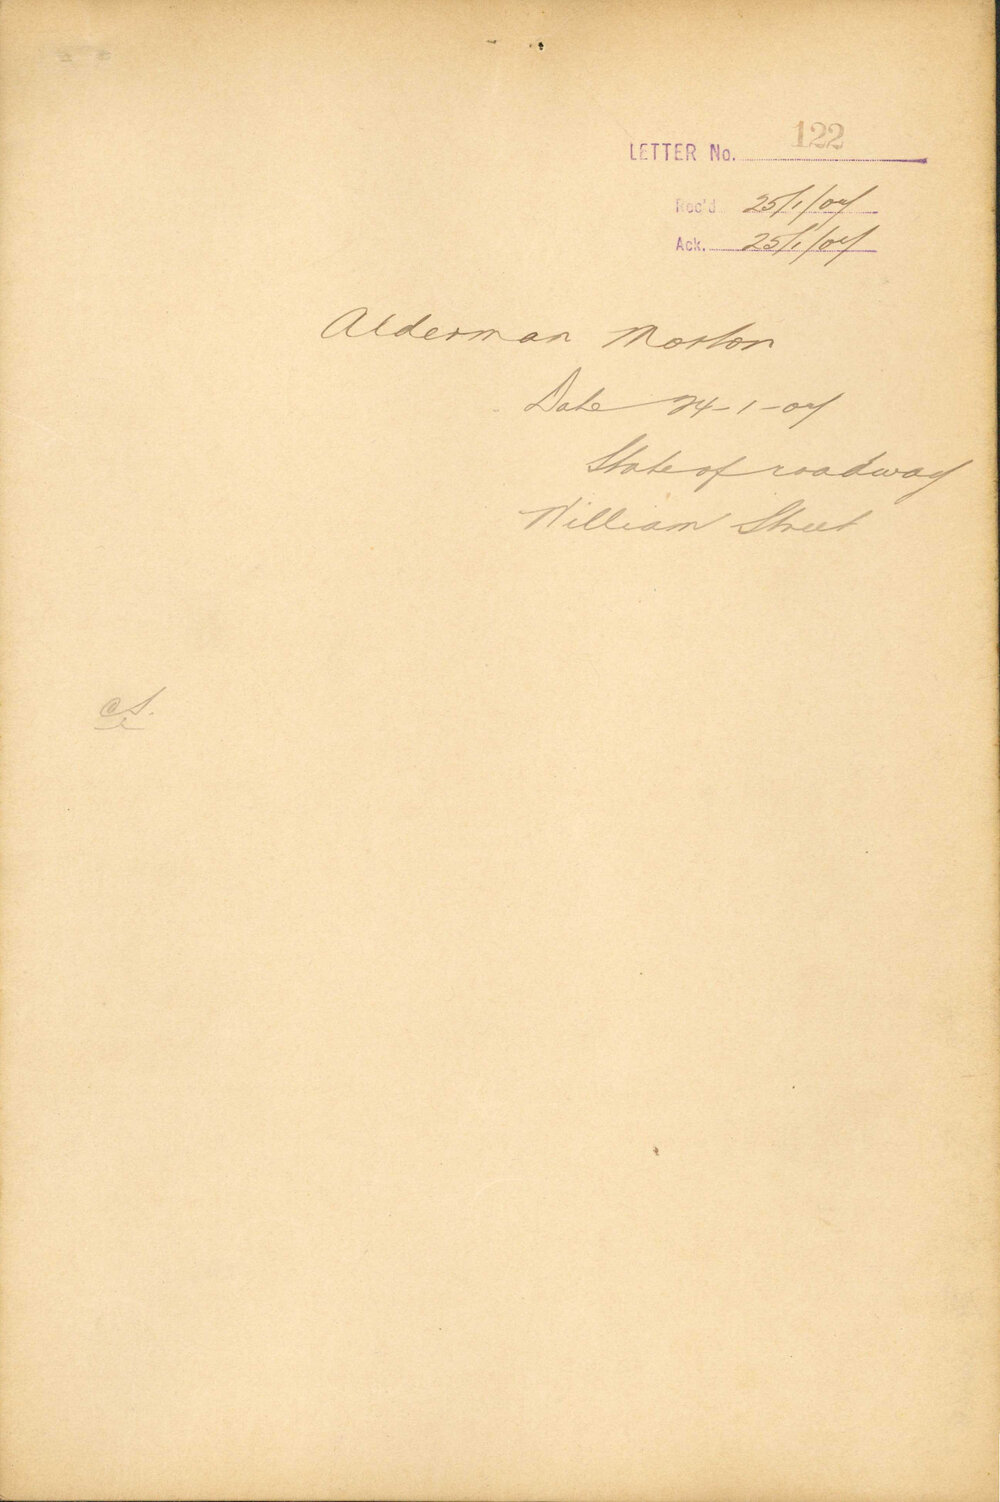 LETTER No. 122
Rec'd 25/1/07
Ack. 25/1/07
Alderman Morton
Date 24-1-07
State of roadway
William Street
CS.